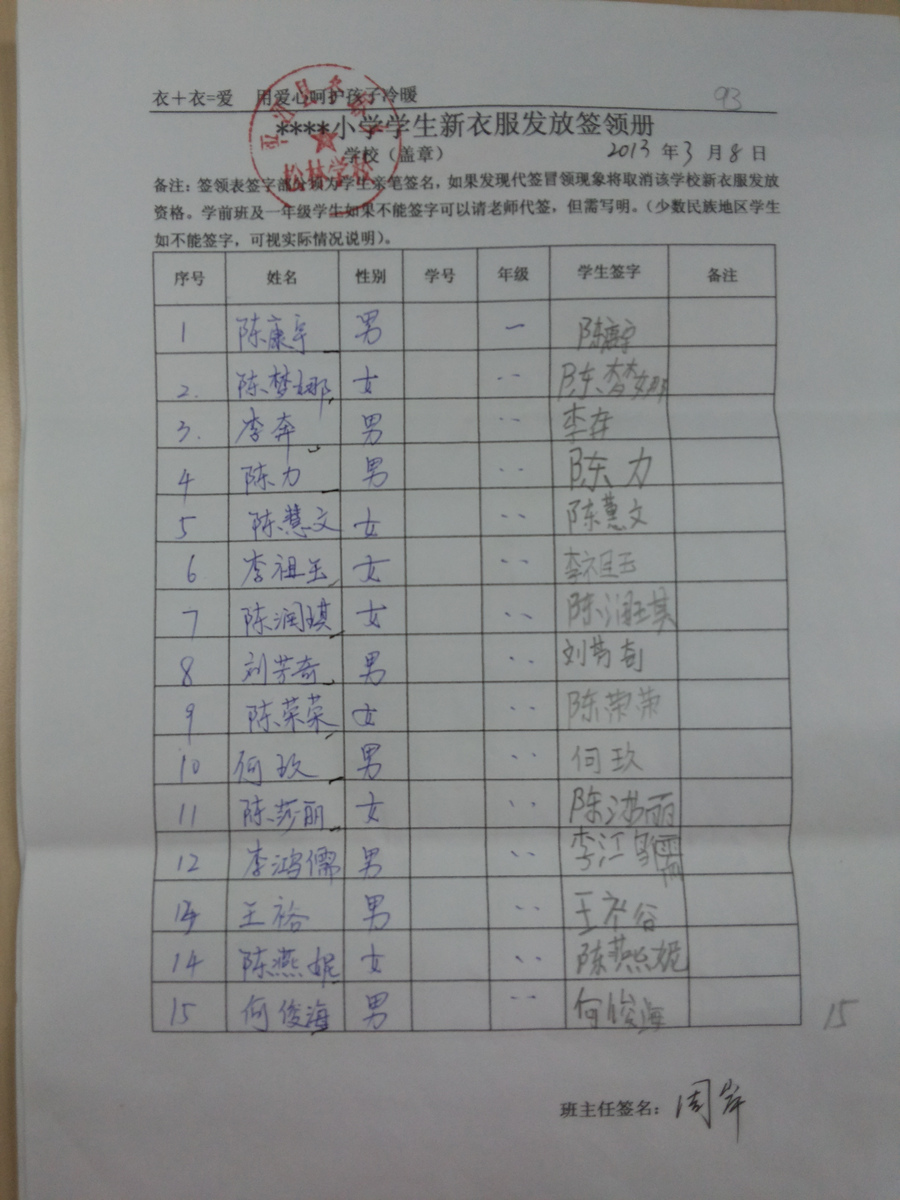 衣+衣=爱 用爱心呵护孩子冷暖
93
****小学学生新衣服发放签领册
学校（盖章） 2013 年 3 月 8 日
松林学校
备注：签领表签字部分须为学生亲笔签名，如果发现代签冒领现象将取消该学校新衣服发放
资格。学前班及一年级学生如果不能签字可以请老师代签，但需写明。（少数民族地区学生
如不能签字，可视实际情况说明）。
序号 姓名 性别 学号 年级 学生签字 备注
1 陈康宇 男 一 陈康宇
2. 陈梦娜 女 、、 陈梦娜
3. 李奔 男 、、 李奔
4 陈力 男 、、 陈力
5 陈慧文 女 、、 陈慧文
6 李祖玉 女 、、 李祖玉
7 陈润琪 女 、、 陈润琪
8 刘芳奇 男 、、 刘芳奇
9 陈荣荣 女 、、 陈荣荣
10 何玖 男 、、 何玖
11 陈莎丽 女 、、 陈莎丽
12 李鸿儒 男 、、 李鸿儒
13 王裕 男 、、 王裕
14 陈燕妮 女 、、 陈燕妮
15 何俊海 男 、、 何俊海
15
班主任签名：周岸